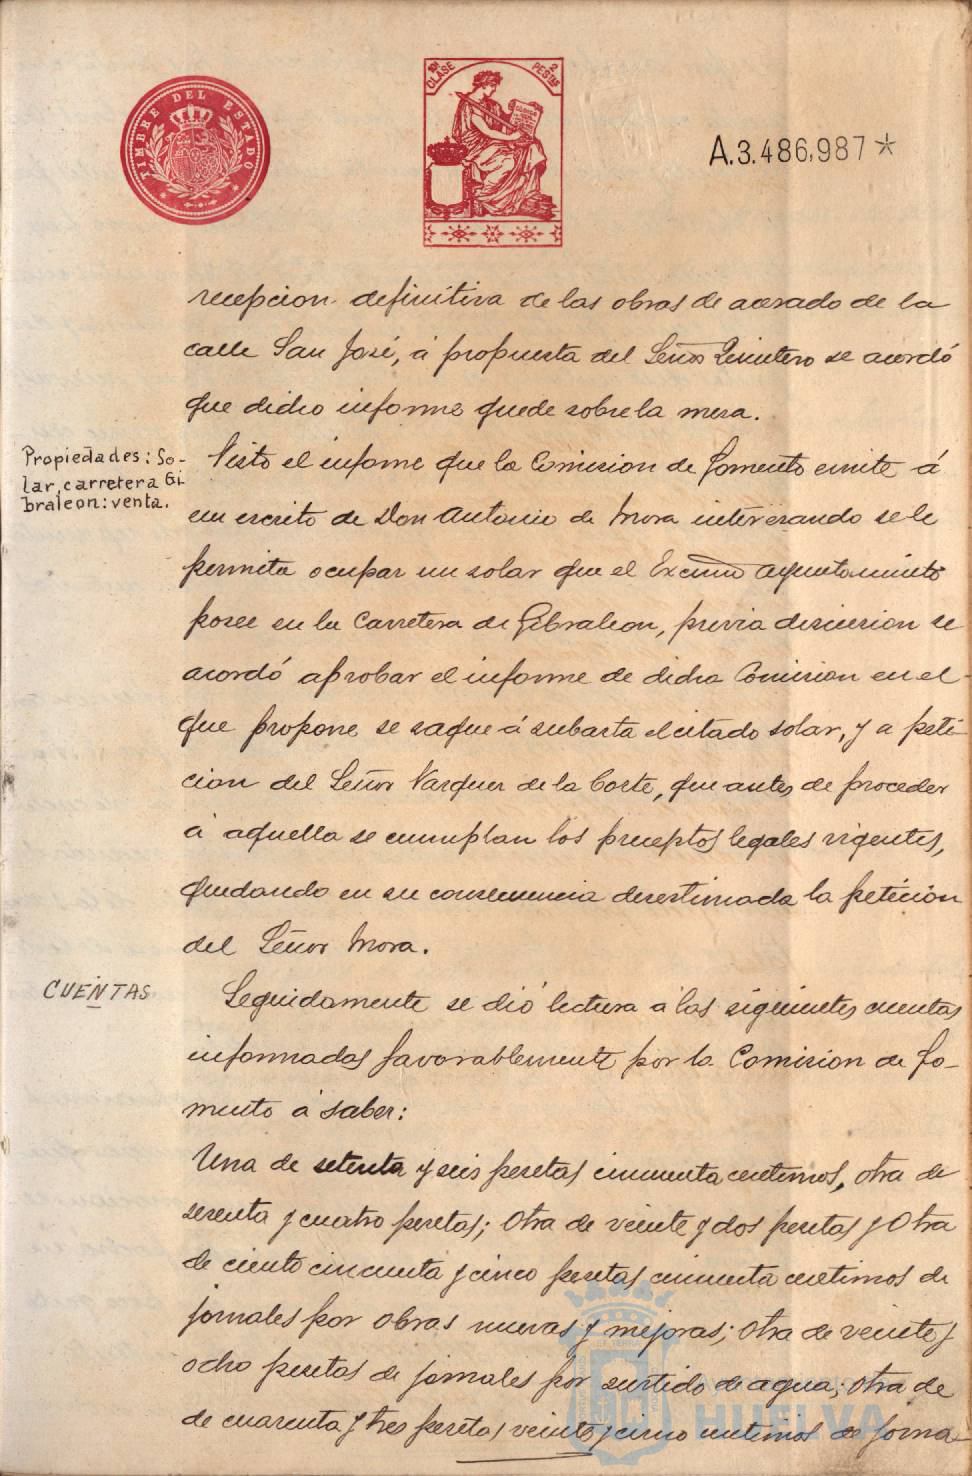 TIMBRE DEL ESTADO
10ª CLASE 2 PESETAS
A.3.486,987*
recepcion definitiva de las obras de acerado de la
calle San José, á propuesta del Señor Quintero se acordó
que dicho informe quede sobre la mesa.
Propiedades: So-
lar, carretera Gi
braleon: venta.
Visto el informe que la Comision de Fomento emite á
un escrito de Don Antonio de Mora interesando se le
permita ocupar un solar que el Excmo Ayuntamiento
posee en la Carretera de Gibraleon, previa discusion se
acordó aprobar el informe de dicha Comision en el
que propone se saque á subasta el citado solar, y a peti-
cion del Señor Vazquez de la Corte, que antes de proceder
á aquella se cumplan los preceptos legales vigentes,
quedando en su consecuencia desestimada la petición
del Señor Mora.
CUENTAS
Seguidamente se dió lectura á las siguientes cuentas
informadas favorablemente por la Comision de Fo-
mento á saber:
Una de setenta y seis pesetas cincuenta centimos, otra de
sesenta y cuatro pesetas; Otra de veinte y dos pesetas y Otra
de ciento cincuenta y cinco pesetas cincuenta centimos de
jornales por obras nuevas y mejoras; Otra de veinte y
ocho pesetas de jornales por surtido de agua; otra de
de cuarenta y tres pesetas veinte y cinco centimos de jorna-
HUELVA